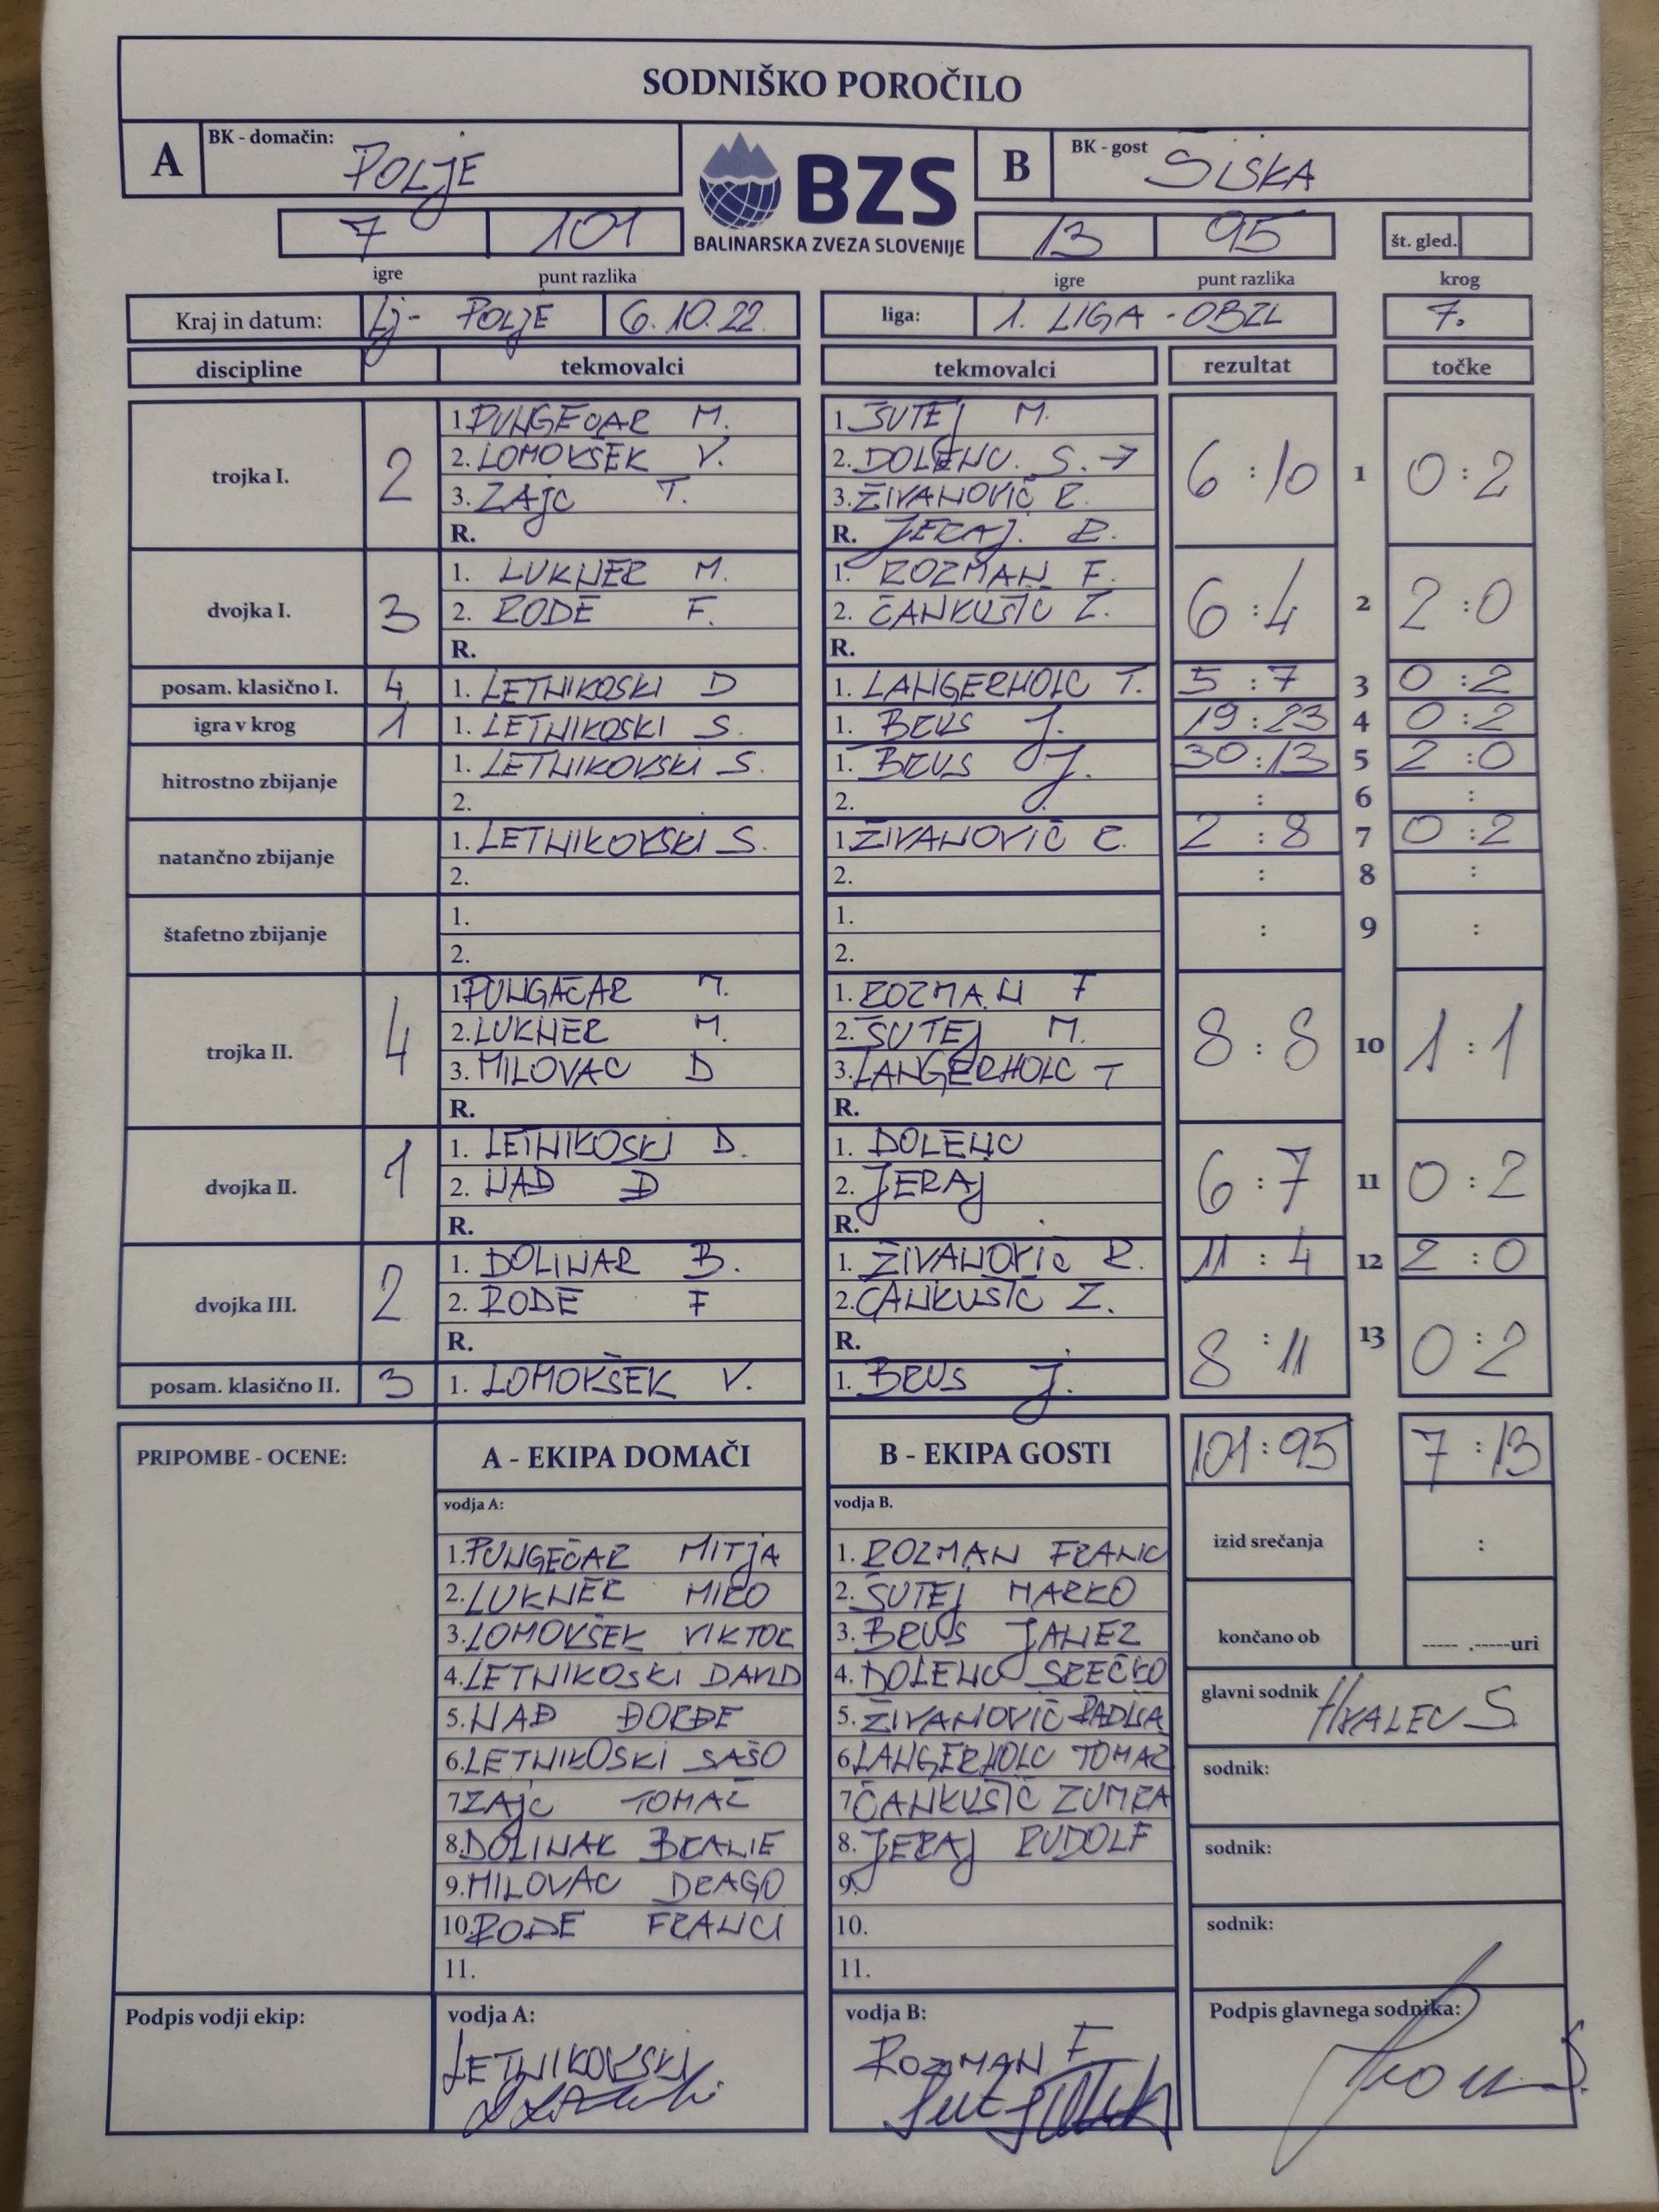 SODNIŠKO POROČILO
A BK - domačin: POLJE BZS B BK - gost ŠIŠKA
7 101 BALINARSKA ZVEZA SLOVENIJE 13 95 št. gled.
igre punt razlika igre punt razlika krog
Kraj in datum: Lj- POLJE 6.10.22. liga: 1. LIGA - OBZL 7.
discipline tekmovalci tekmovalci rezultat točke
trojka I. 2 6 : 10 1 0 : 2
1. PUNGEČAR M. 1. ŠUTEJ M.
2. LOMOVŠEK V. 2. DOLENC. S. →
3. ZAJC T. 3. ŽIVANOVIČ R.
R. R. JERAJ. R.
dvojka I. 3 6 : 4 2 2 : 0
1. LUKNER M. 1. ROZMAN F.
2. RODE F. 2. ČANKUSIČ Z.
R. R.
posam. klasično I. 4 1. LETNIKOSKI D 1. LANGERHOLC T. 5 : 7 3 0 : 2
igra v krog 1 1. LETNIKOSKI S. 1. BRUS J. 19 : 23 4 0 : 2
hitrostno zbijanje 1. LETNIKOVSKI S. 1. BRUS J. 30 : 13 5 2 : 0
2. 2. : 6 :
natančno zbijanje 1. LETNIKOVSKI S. 1. ŽIVANOVIČ R. 2 : 8 7 0 : 2
2. 2. : 8 :
štafetno zbijanje 1. 1. : 9 :
2. 2.
trojka II. 4 8 : 8 10 1 : 1
1. PUNGAČAR M. 1. ROZMAN F
2. LUKNER M. 2. ŠUTEJ M.
3. MILOVAC D 3. LANGERHOLC T
R. R.
dvojka II. 1 6 : 7 11 0 : 2
1. LETNIKOSKI D. 1. DOLENC
2. NAĐ Đ 2. JERAJ
R. R.
dvojka III. 2 1. DOLINAR B. 1. ŽIVANOVIČ R. 11 : 4 12 2 : 0
2. RODE F 2. ČANKUSIČ Z.
R. R. 8 : 11 13 0 : 2
posam. klasično II. 3 1. LOMOVŠEK V. 1. BRUS J.
PRIPOMBE - OCENE: A - EKIPA DOMAČI B - EKIPA GOSTI 101 : 95 7 : 13
vodja A: vodja B.
1. PUNGEČAR MITJA 1. ROZMAN FRANC izid srečanja :
2. LUKNER MIRO 2. ŠUTEJ MARKO
3. LOMOVŠEK VIKTOR 3. BRUS JANEZ končano ob ----- .-----uri
4. LETNIKOSKI DAVID 4. DOLENC SREČKO
5. NAĐ ĐORĐE 5. ŽIVANOVIČ RADIŠA glavni sodnik S.
6. LETNIKOSKI SAŠO 6. LANGERHOLC TOMAŽ sodnik:
7 ZAJC TOMAŽ 7 ČANKUSIČ ZUMRA
8. DOLINAR BRANE 8. JERAJ RUDOLF sodnik:
9. MILOVAC DRAGO 9.
10. RODE FRANCI 10. sodnik:
11. 11.
Podpis vodji ekip: vodja A: vodja B: Podpis glavnega sodnika:
LETNIKOVSKI ROZMAN F